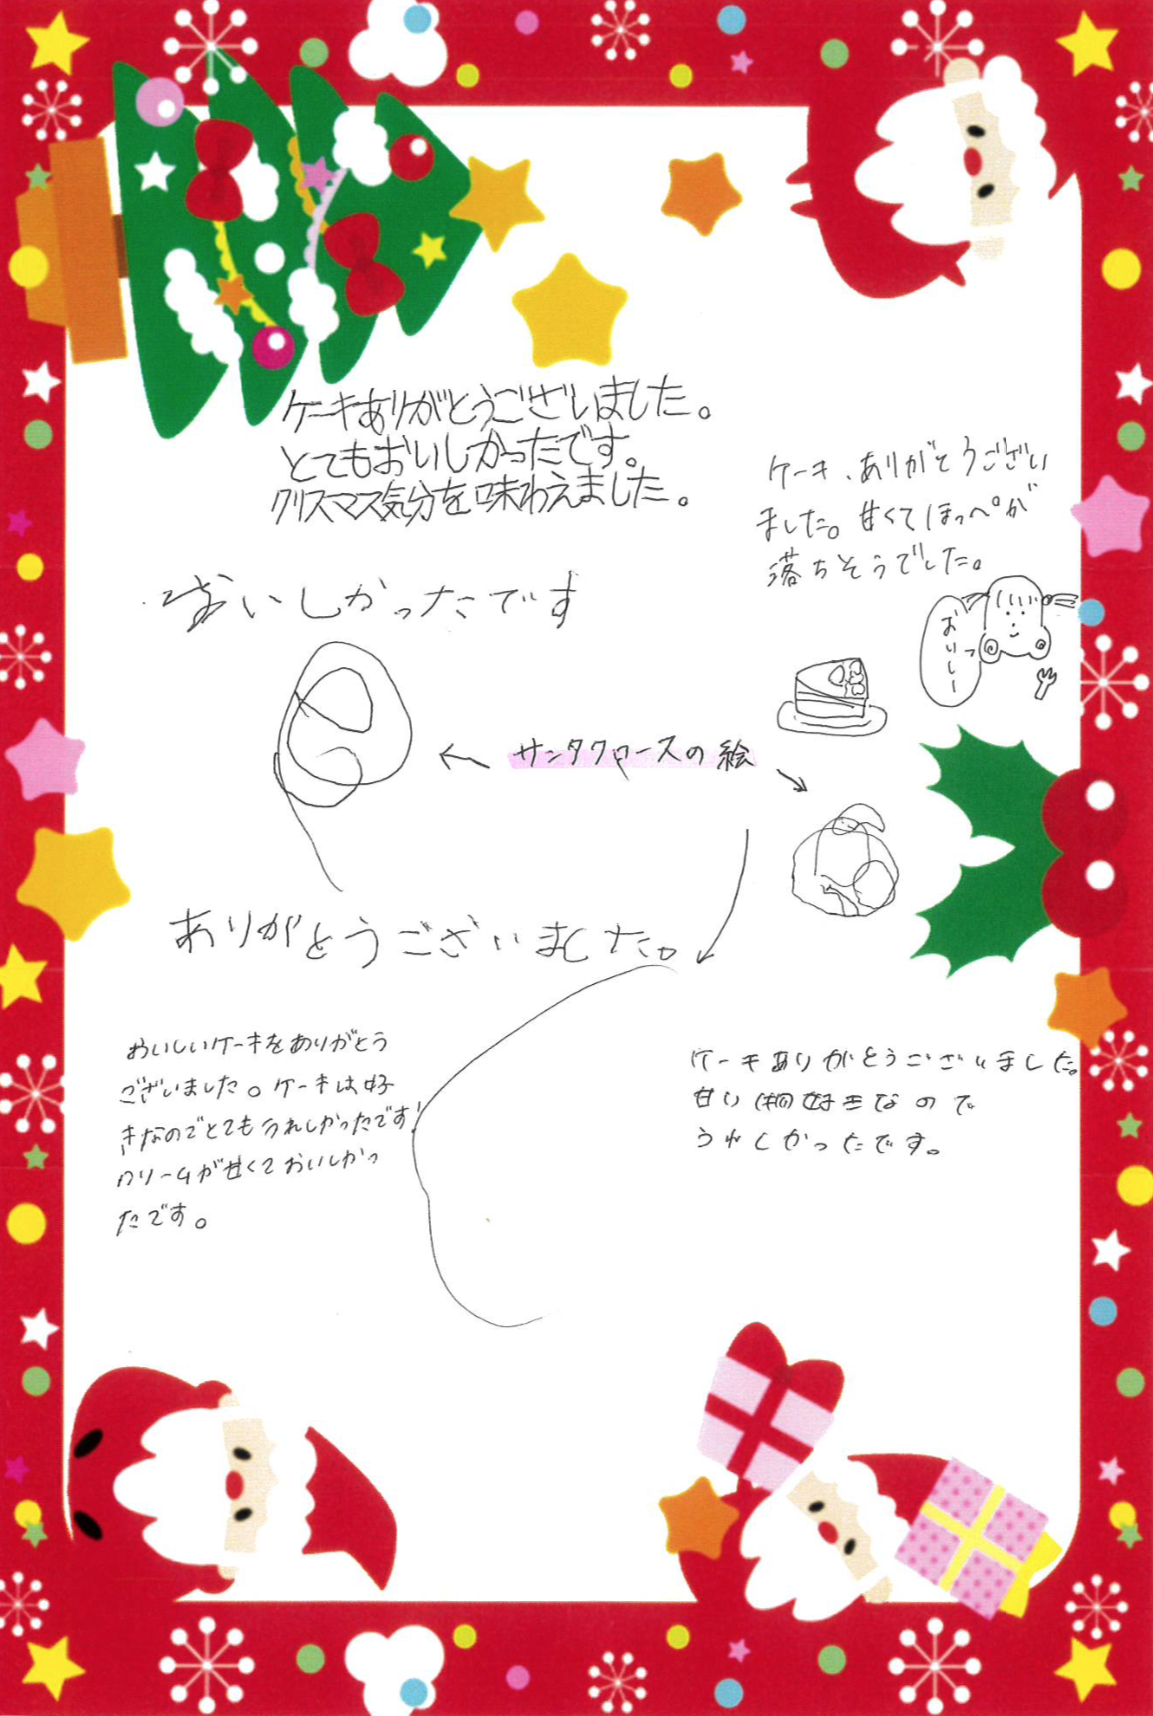 ケーキありがとうございました。
とてもおいしかったです。
クリスマス気分を味わえました。
ケーキ、ありがとうござい
ました。甘くてほっぺが
落ちそうでした。
おいしかったです
おいしーっ
サンタクロースの絵
ありがとうございました。
おいしいケーキをありがとう
ございました。ケーキは好
きなのでとてもうれしかったです!
クリームが甘くておいしかっ
たです。
ケーキありがとうございました。
甘い物好きなので
うれしかったです。